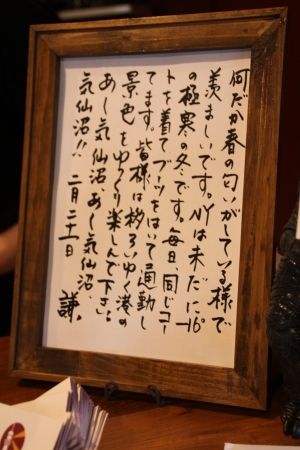 何だか春の匂いがしている様で
羨ましいです。NYは未だに-16°
の極寒の冬です。毎日、同じコー
トを着てブーツをはいて通勤し
てます。皆様は移ろいゆく港の
景色をゆっくり楽しんで下さい。
あゝ気仙沼、あゝ気仙沼、
気仙沼!! 二月二十一日 謙